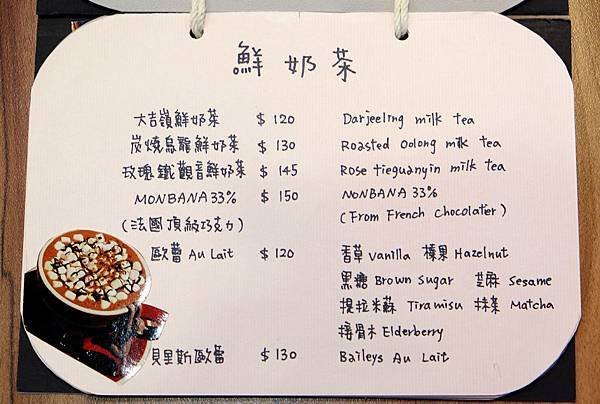 鮮奶茶
大吉嶺鮮奶茶 $ 120 Darjeeling milk tea
炭燒烏龍鮮奶茶 $ 130 Roasted Oolong milk tea
玫瑰鐵觀音鮮奶茶 $ 145 Rose tieguanyin milk tea
MONBANA 33% $ 150 MONBANA 33%
(法國頂級巧克力) (From French Chocolatier)
歐蕾 Au Lait $ 120 香草 vanilla 榛果 Hazelnut
黑糖 Brown Sugar 芝麻 Sesame
提拉米蘇 Tiramisu 抹茶 Matcha
接骨木 Elderberry
貝里斯歐蕾 $ 130 Baileys Au Lait